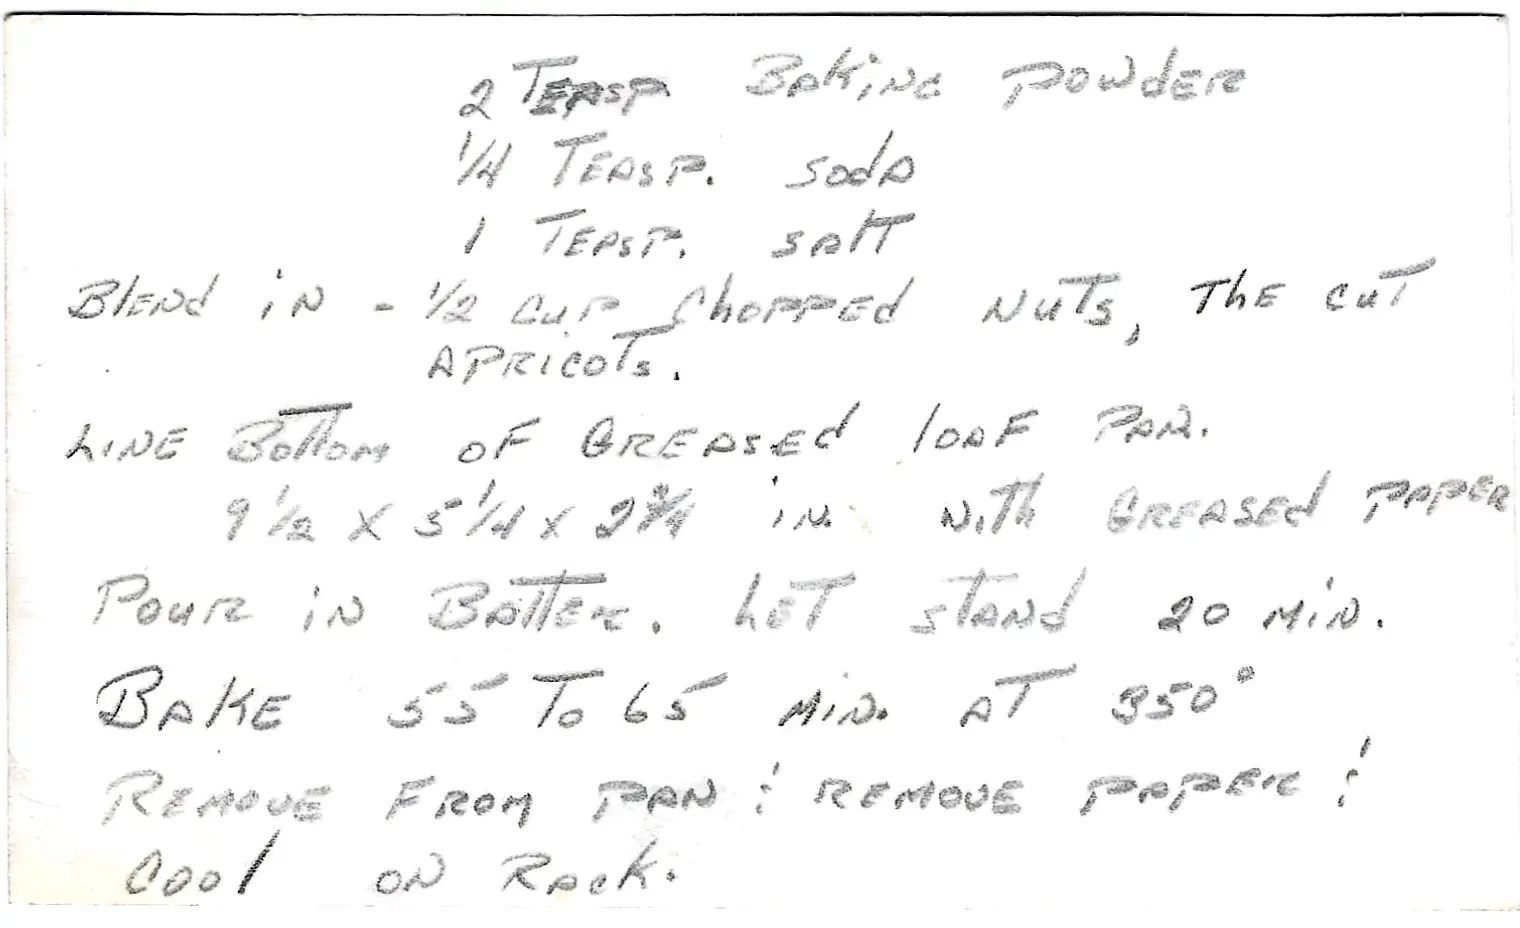 2 Teasp Baking Powder
1/4 Teasp. soda
1 Teasp. salt
Blend in - 1/2 cup chopped nuts, the cut
apricots.
Line Bottom of Greased loaf pan.
9 1/2 x 5 1/4 x 2 3/4 in. with Greased paper
Pour in Batter. Let stand 20 min.
Bake 55 To 65 min. at 350°
Remove from pan & remove paper &
Cool on Rack.